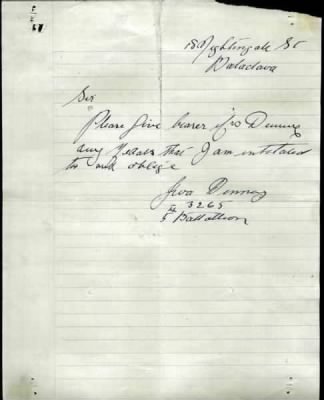 18 Nightingale St
Balaclava
Sir
Please give bearer Denny
any Medals that I am intitaled
to and oblige
Denney
3265
5 Battallion